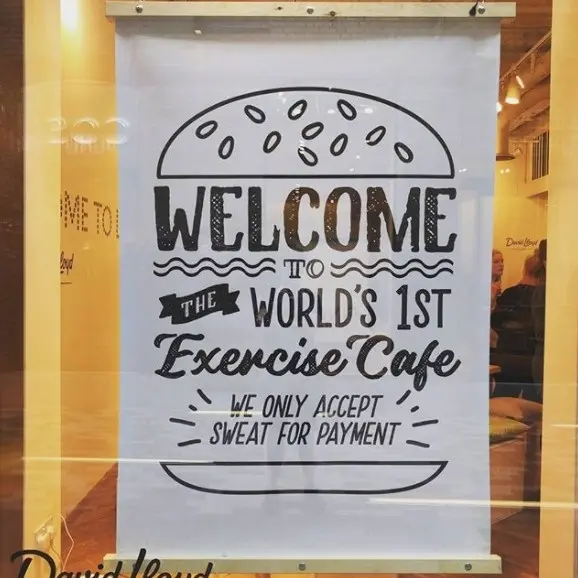 WELCOME
TO
THE WORLD'S 1ST
Exercise Cafe
WE ONLY ACCEPT
SWEAT FOR PAYMENT
OME TO
loyd
David Lloyd
David Lloyd